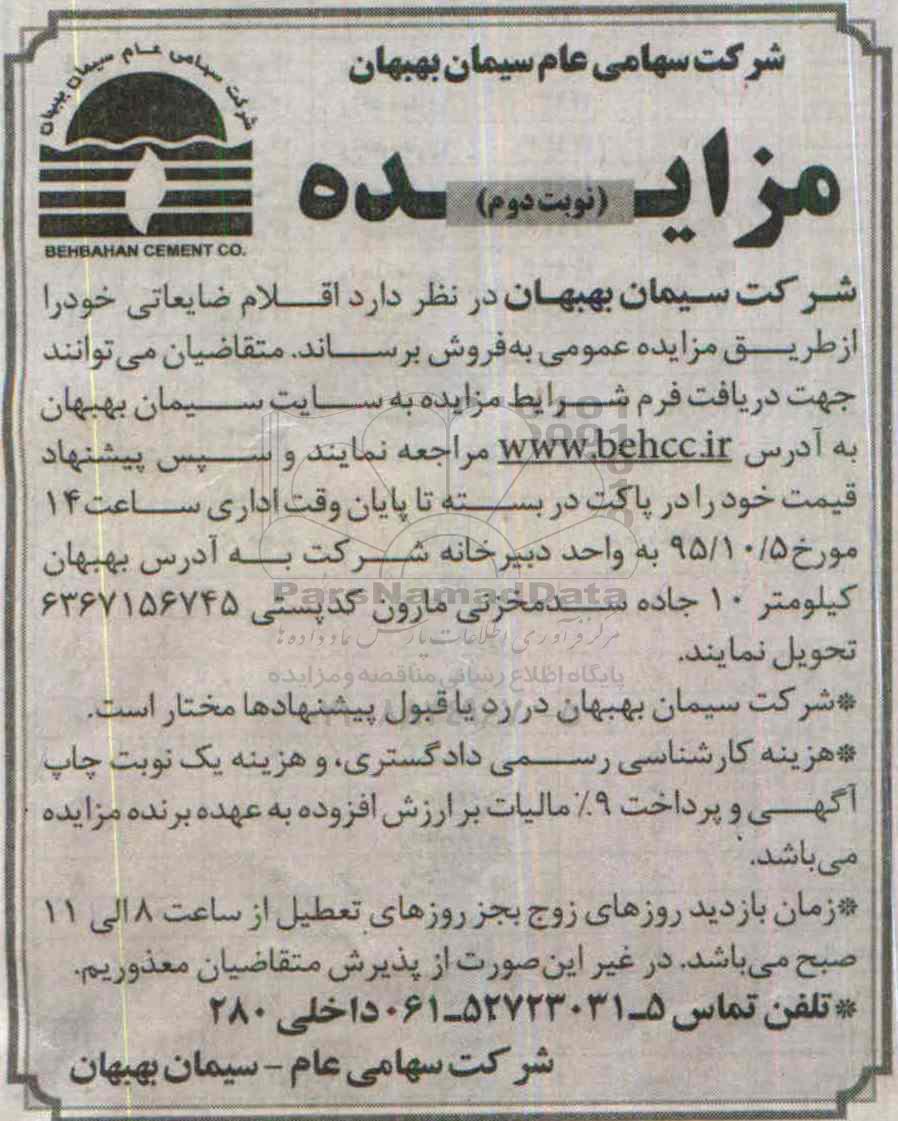 شرکت سهامی عام سیمان بهبهان
شرکت سهامی عام سیمان بهبهان
BEHBAHAN CEMENT CO.
مزایـــده
(نوبت دوم)
شرکت سیمان بهبهان در نظر دارد اقلام ضایعاتی خودرا
ازطریق مزایده عمومی به‌فروش برساند. متقاضیان می‌توانند
جهت دریافت فرم شرایط مزایده به سایت سیمان بهبهان
به آدرس www.behcc.ir مراجعه نمایند و سپس پیشنهاد
قیمت خود را در پاکت در بسته تا پایان وقت اداری ساعت ۱۴
مورخ ۹۵/۱۰/۵ به واحد دبیرخانه شرکت به آدرس بهبهان
کیلومتر ۱۰ جاده سدمخزنی مارون کدپستی ۶۳۶۷۱۵۶۷۴۵
تحویل نمایند.
*شرکت سیمان بهبهان در رد یا قبول پیشنهادها مختار است.
*هزینه کارشناسی رسمی دادگستری، و هزینه یک نوبت چاپ
آگهی و پرداخت ۹٪ مالیات بر ارزش افزوده به عهده برنده مزایده
می‌باشد.
*زمان بازدید روزهای زوج بجز روزهای تعطیل از ساعت ۸ الی ۱۱
صبح می‌باشد. در غیر این‌صورت از پذیرش متقاضیان معذوریم.
*تلفن تماس ۵ـ۵۲۷۲۳۰۳۱ـ۰۶۱ داخلی ۲۸۰
شرکت سهامی عام - سیمان بهبهان
ParsNamadData
مرکز فرآوری اطلاعات پارس نماد داده ها
پایگاه اطلاع رسانی مناقصه و مزایده